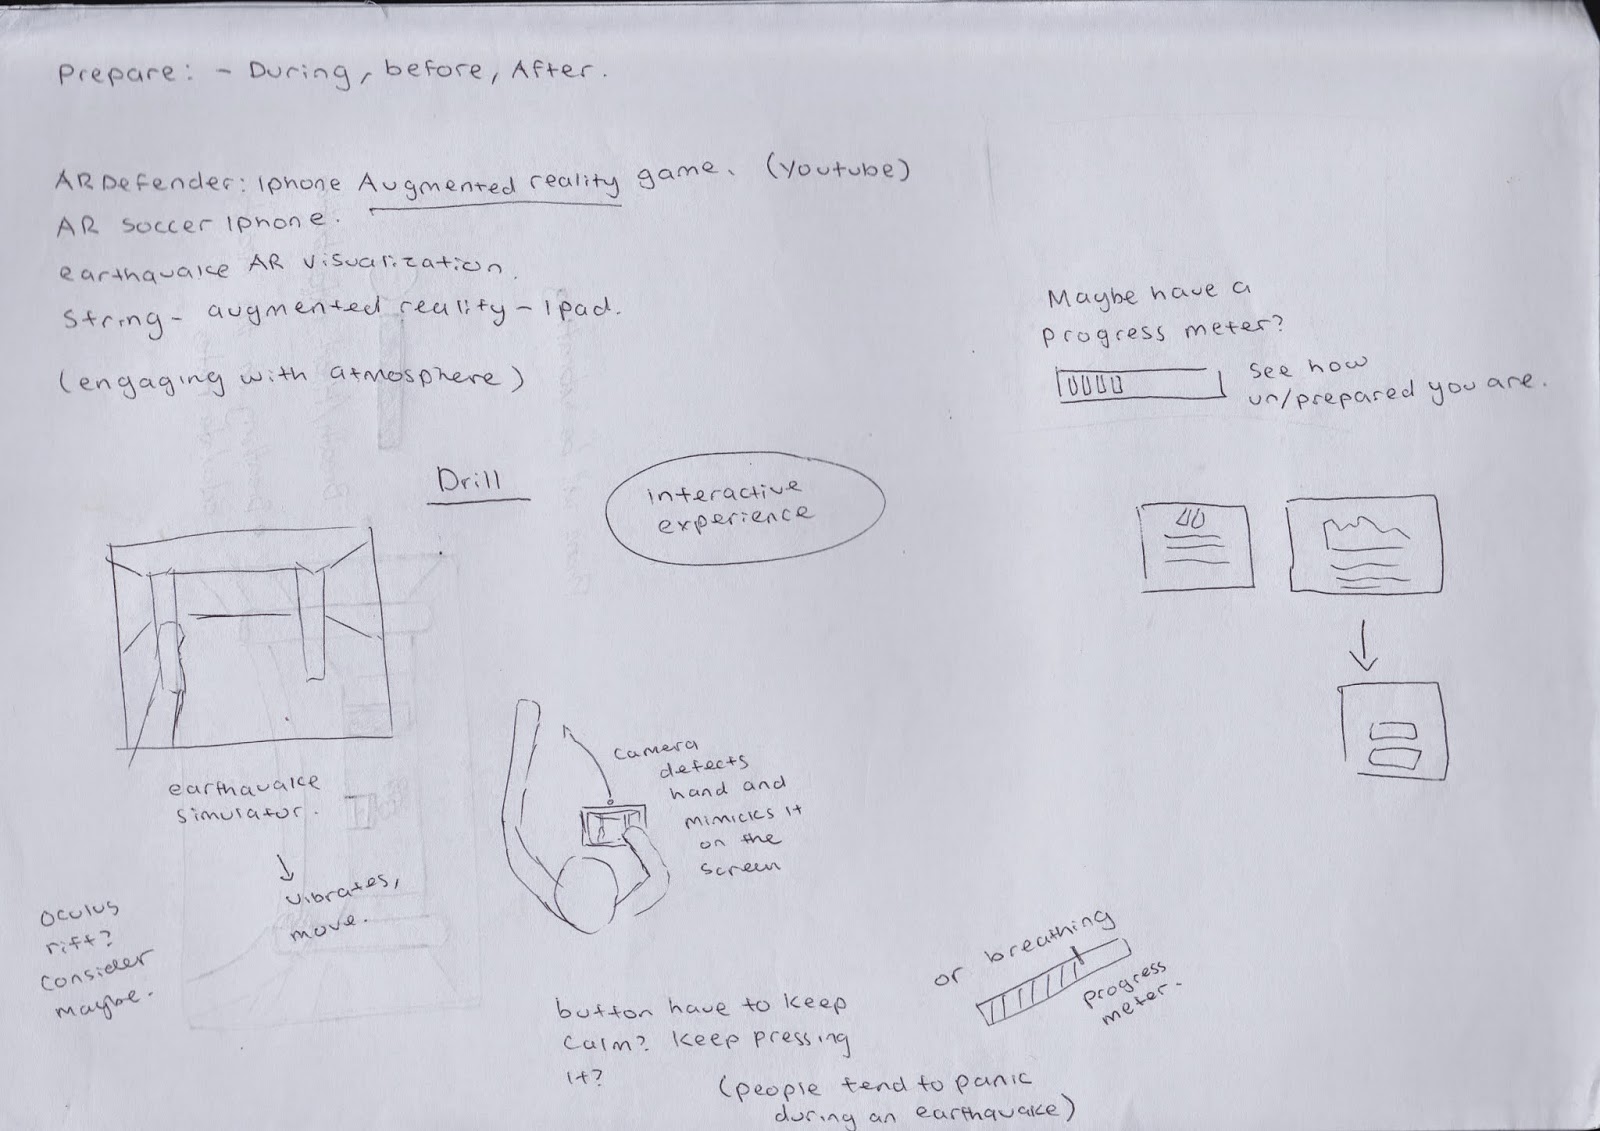 Prepare: - During, before, After.
AR Defender: Iphone Augmented reality game. (Youtube)
AR Soccer Iphone.
earthquake AR visualization.
String - augmented reality - Ipad.
(engaging with atmosphere)
Maybe have a
progress meter?
See how
un/prepared you are.
Drill
interactive
experience
earthquake
simulator.
vibrates,
move.
Oculus
rift?
Consider
maybe.
Camera
detects
hand and
mimicks it
on the
screen
or breathing
progress
meter.
button have to keep
calm? keep pressing
it?
(people tend to panic
during an earthquake)